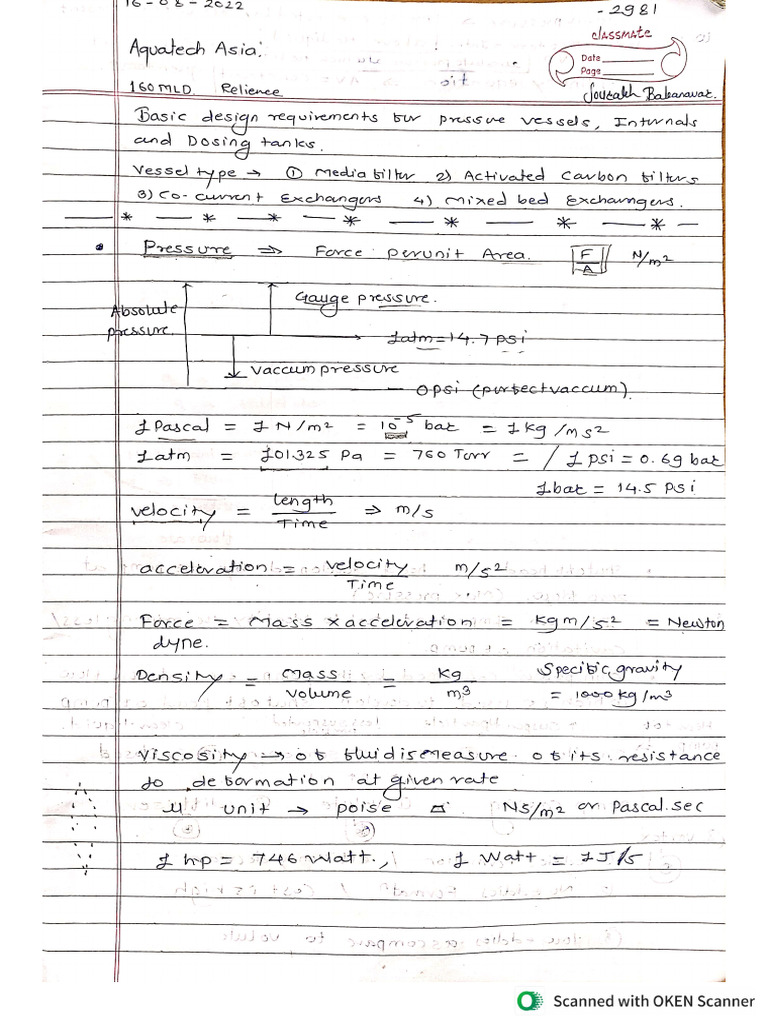 16-08-2022
-2981
classmate
Date
Page
Aquatech Asia:
160 MLD. Relience
Sourabh Babanavar.
Basic design requirements for pressure vessels, Internals
and Dosing tanks.
Vessel type → ① Media filter 2) Activated Carbon filters
3) Co-current Exchangers 4) Mixed bed Exchamngers.
• Pressure ⇒ Force per unit Area. F/A N/m²
Gauge pressure.
Absolute
pressure.
1 atm = 14.7 psi
Vaccum pressure
0 psi (perfect vaccum).
1 Pascal = 1 N/m² = 10⁻⁵ bar = 1 kg/ms²
1 atm = 101.325 Pa = 760 Torr = / 1 psi = 0.69 bar
1 bar = 14.5 psi
velocity = Length / Time ⇒ m/s
acceleration = velocity / Time m/s²
Force = Mass × acceleration = kgm/s² = Newton
dyne.
Density = Mass / volume = kg / m³ Specific gravity
= 1000 kg/m³
Viscosity → of fluid is measure of its resistance
to deformation at given rate
μ unit → poise Ns/m² or Pascal.sec
1 hp = 746 Watt., 1 Watt = 1 J/s
Scanned with OKEN Scanner